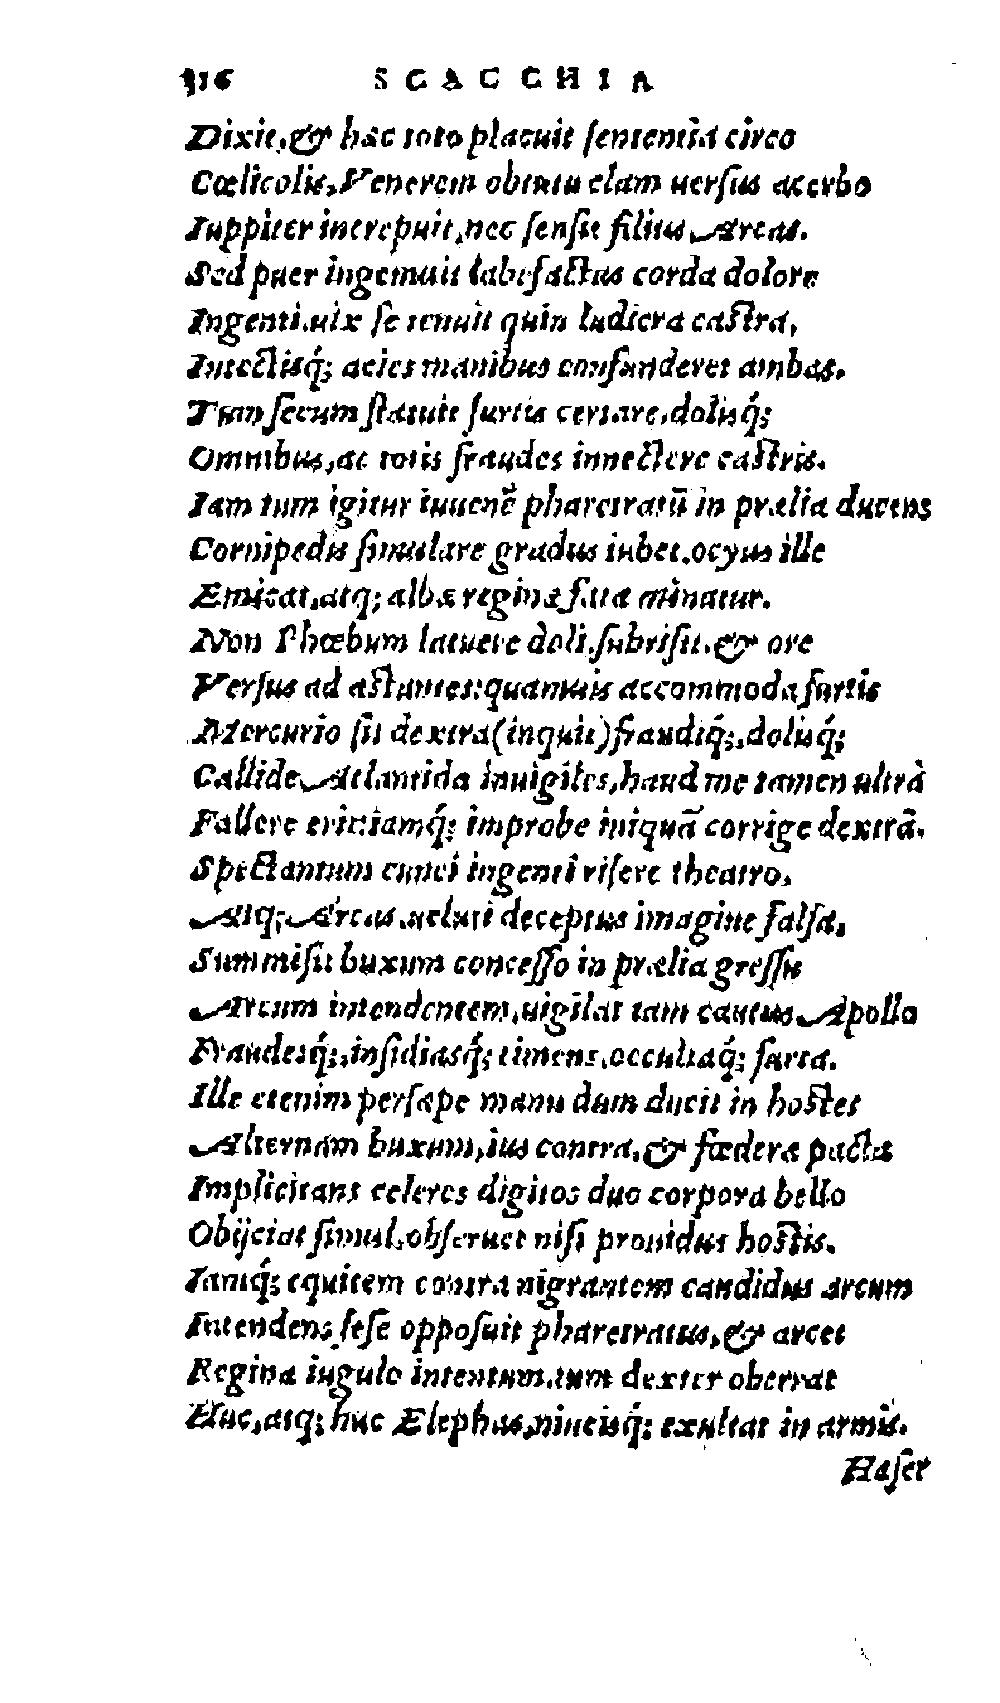 316 SCACCHIA
Dixit, & hæc toto placuit sententia circo
Cœlicolis, Venerem obtutu clam uersus acerbo
Iuppiter increpuit, nec sensit filius Arcas.
Sed puer ingemuit labefactus corda dolore
Ingenti, uix se tenuit quin ludicra castra,
Iniectisq́; acies manibus confunderet ambas.
Tum secum statuit furtis certare, dolisq́;
Omnibus, ac totis fraudes innectere castris.
Iam tum igitur iuuenẽ pharetratũ in prælia ducens
Cornipedis simulare gradus iubet, ocyus ille
Emicat, atq; albæ reginæ fata minatur.
Non Phœbum latuere doli, subrisit, & ore
Versus ad astantes: quamuis accommoda furtis
Mercurio sit dextra (inquit) fraudiq́;, dolisq́;
Callide Atlantida inuigiles, haud me tamen ultrà
Fallere erit: iamq́; improbe iniquã corrige dextrã.
Spectantum cuncti ingenti risere theatro,
Atq; Arcas, ueluti deceptus imagine falsa,
Summisit buxum concesso in prælia gressu
Arcum intendentem, uigilat iam cautus Apollo
Fraudesq́;, insidiasq́; timens, occultaq́; furta.
Ille etenim persæpe manu dum ducit in hostes
Alternam buxum, ius contra, & fœdera pacta
Implicitans celeres digitos duo corpora bello
Obijciat simul, obseruet nisi prouidus hostis.
Iamq́; equitem contra nigrantem candidus arcum
Intendens sese opposuit pharetratus, & arcet
Regina iugulo intentum, tum dexter oberrat
Huc, atq; huc Elephas, niueisq́; exultat in armis.
Haset